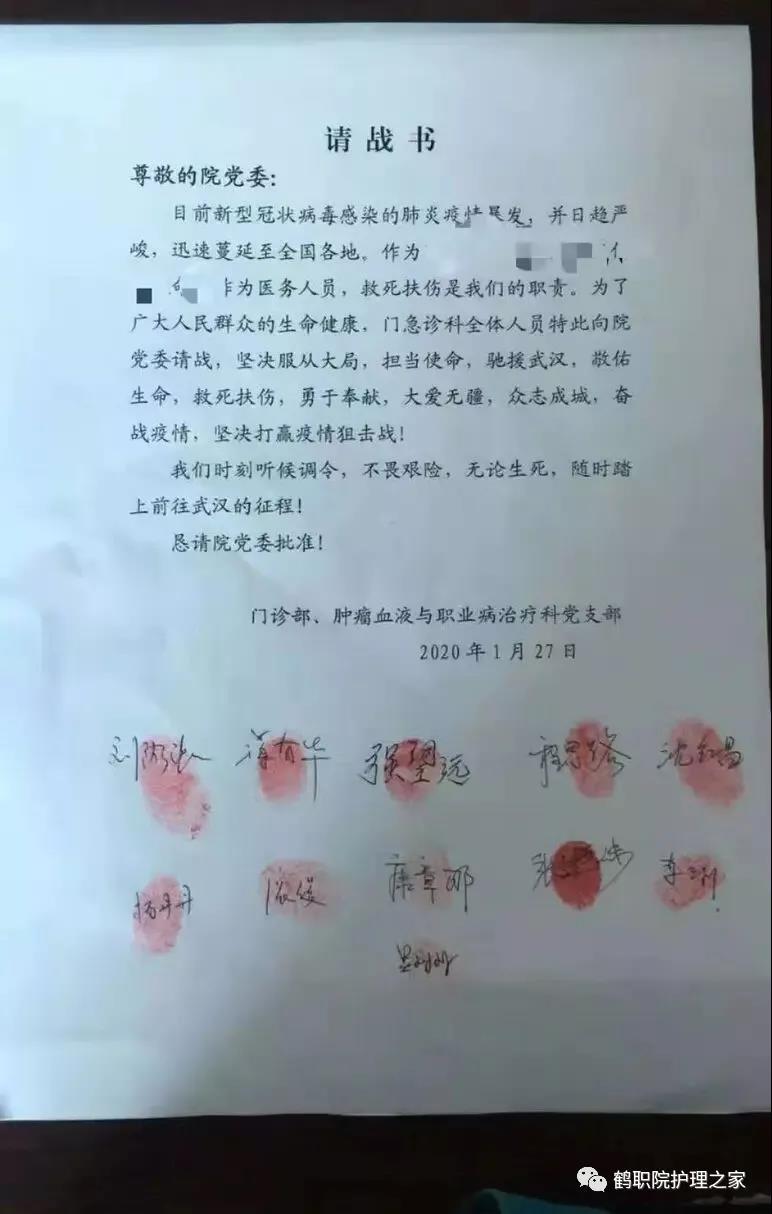 请战书
尊敬的院党委：
目前新型冠状病毒感染的肺炎疫情暴发，并日趋严
峻，迅速蔓延至全国各地。作为
作为医务人员，救死扶伤是我们的职责。为了
广大人民群众的生命健康，门急诊科全体人员特此向院
党委请战，坚决服从大局，担当使命，驰援武汉，敬佑
生命，救死扶伤，勇于奉献，大爱无疆，众志成城，奋
战疫情，坚决打赢疫情狙击战！
我们时刻听候调令，不畏艰险，无论生死，随时踏
上前往武汉的征程！
恳请院党委批准！
门诊部、肿瘤血液与职业病治疗科党支部
2020年1月27日
杨丹丹
鹤职院护理之家